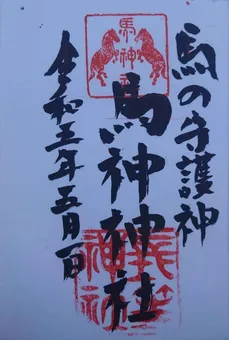 馬の守護神
馬神
馬神神社
令和五年五月一日